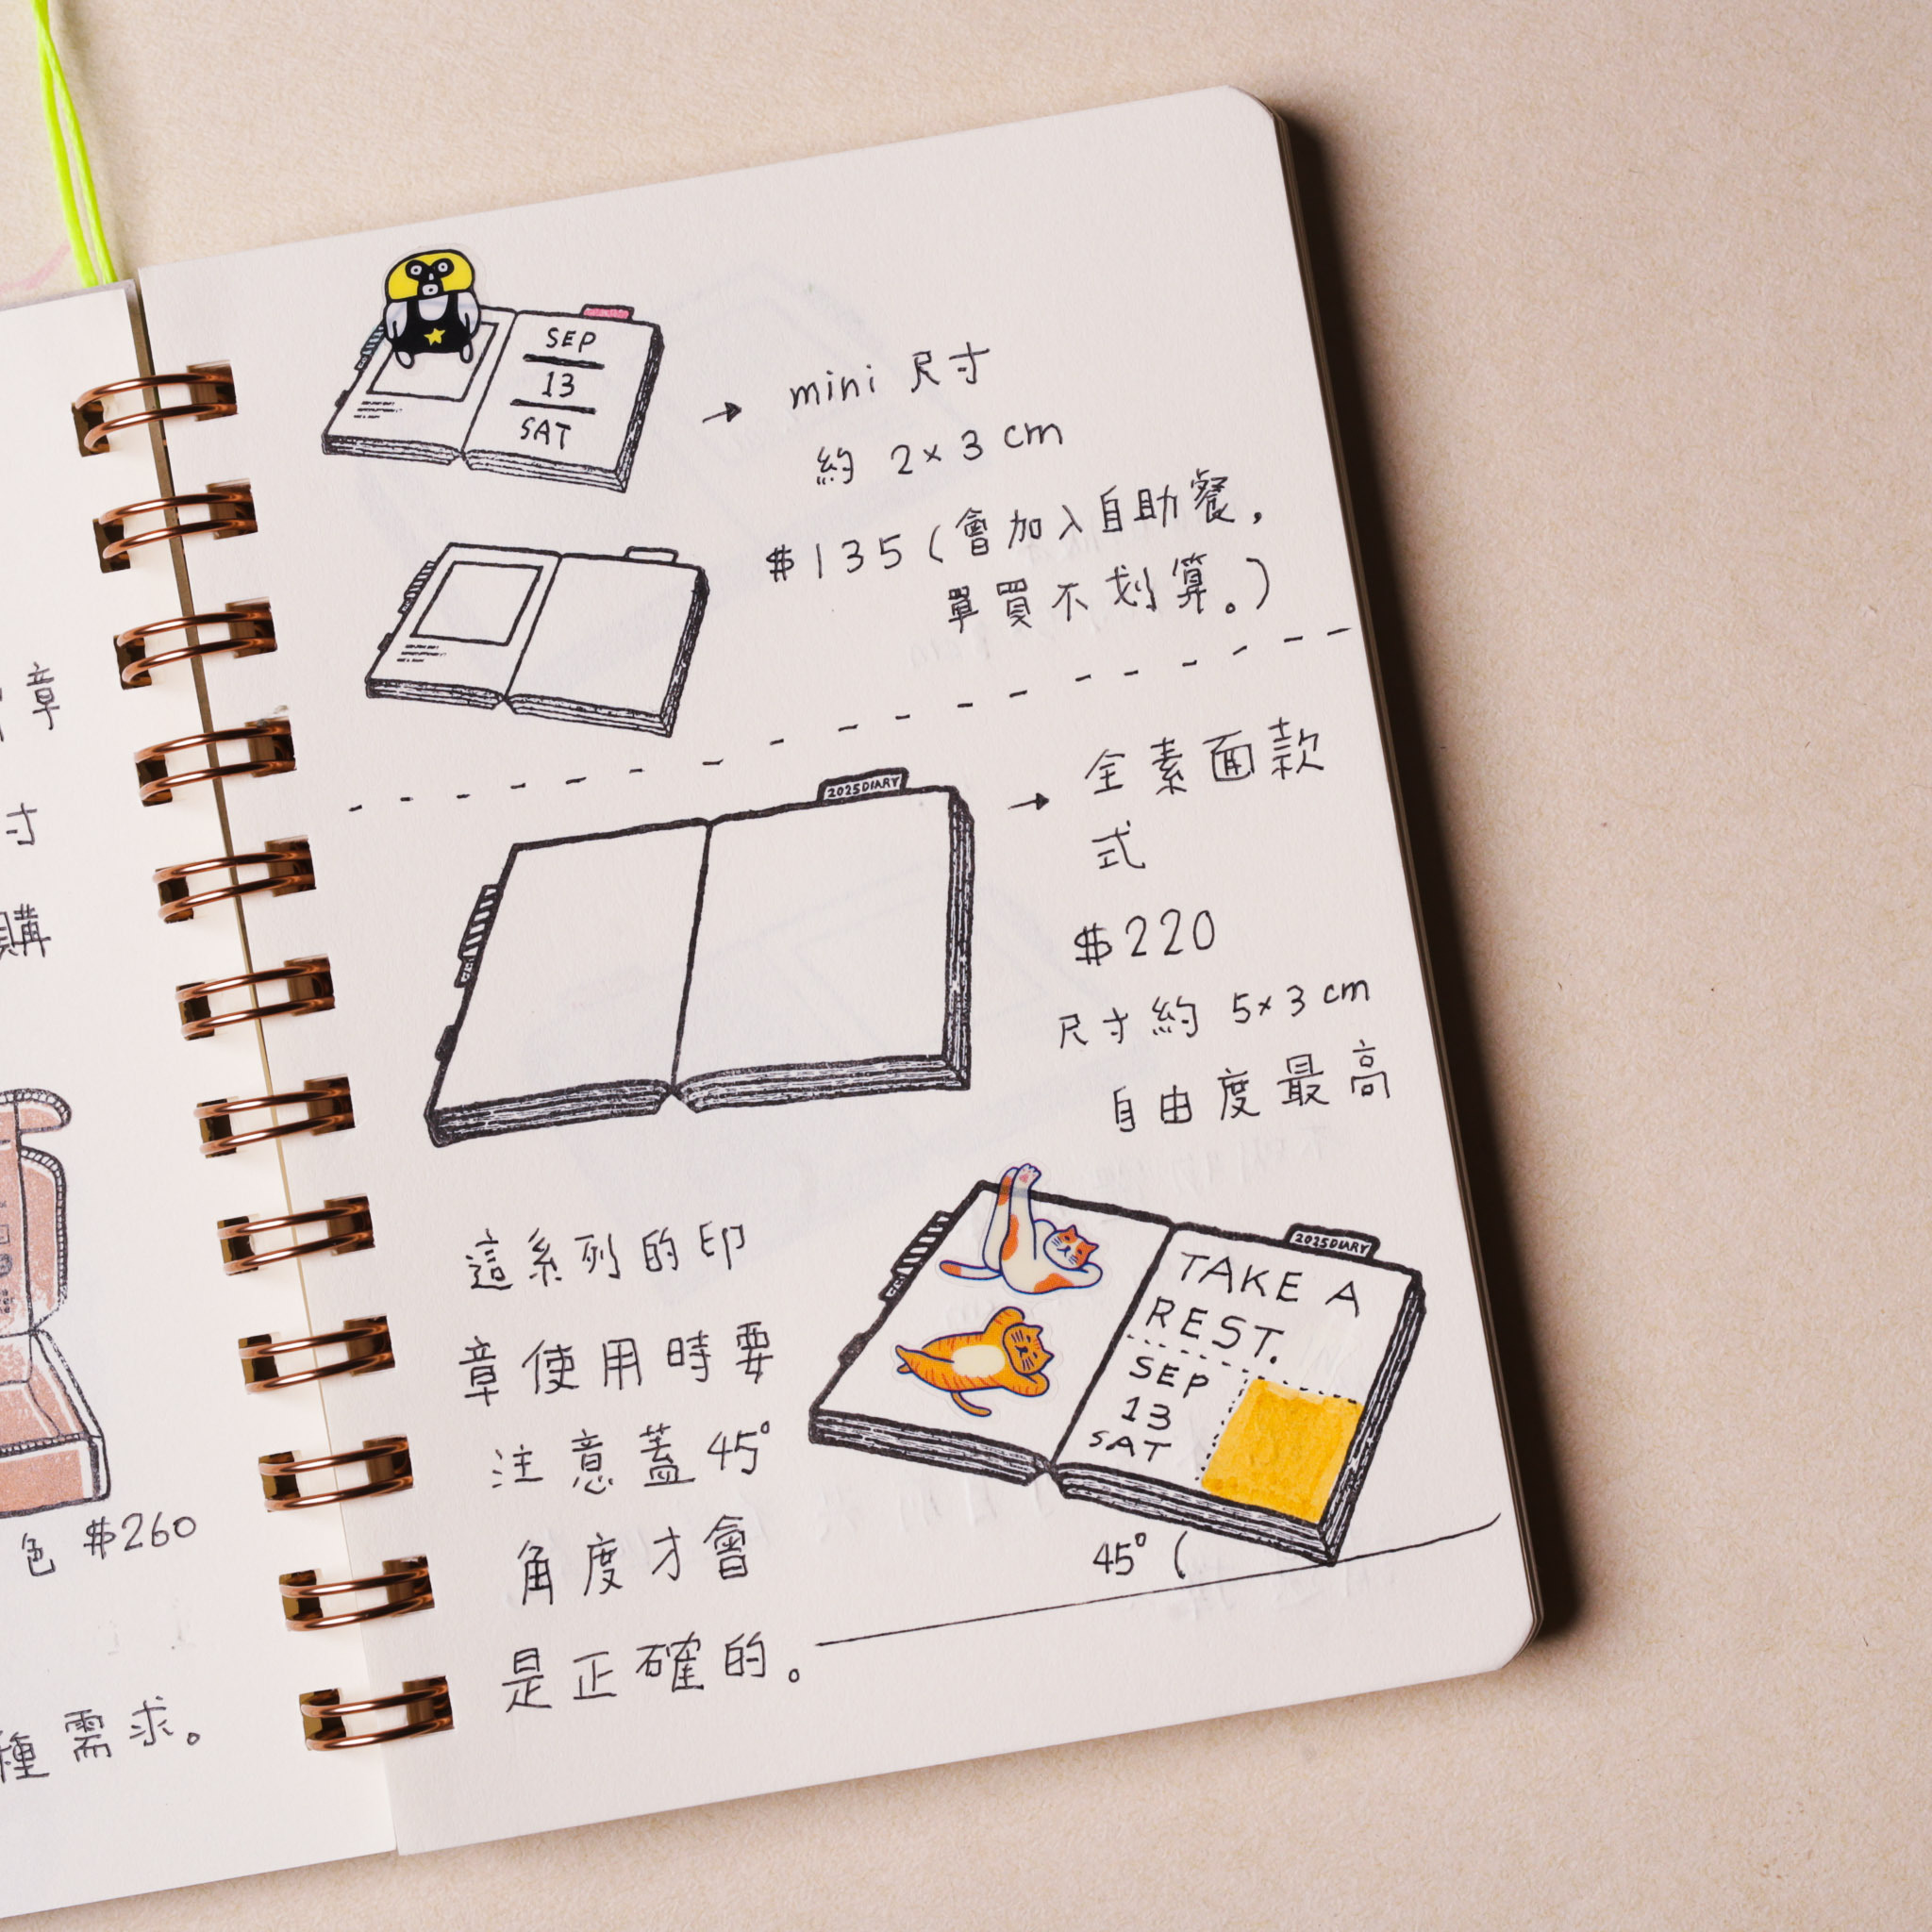 章
寸
購
色 $260
種需求。
SEP
13
SAT
→ mini 尺寸
約 2×3 cm
$135（會加入自助餐，
單買不划算。）
2025 DIARY
→ 全素面款
式
$220
尺寸約 5×3 cm
自由度最高
這系列的印
章使用時要
注意蓋45°
角度才會
是正確的。
2025 DIARY
TAKE A
REST.
SEP
13
SAT
45°